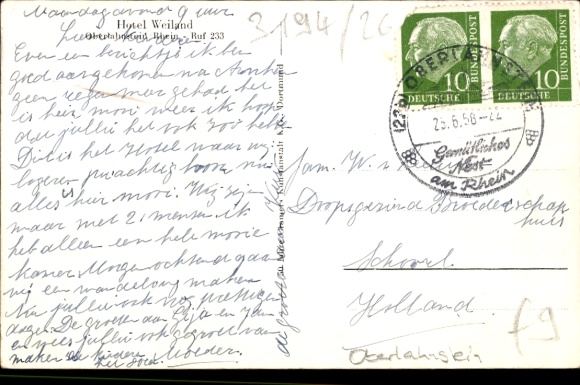 Maandagavond 9 uur
Hotel Weiland
Oberlahnstein Rhein - Ruf 233
3194/26
Even een berichtje ik ben
goed aangekomen na Arnhem
geen regen meer gehad het
is hier mooi weer ik hoop
dat jullie het ook zoo hebt
Dit is het Hotel waar wij
logeren prachtig hoor
alles is hier mooi. Wij zijn
maar met 21 mensen ik
heb alleen een hele mooie
kamer. Morgenochtend gaan
wij een wandeling maken
Nu jullie ook nog prettige
dagen. De groeten aan
en wees jullie ook gegroet van
Moeder.
de groeten
Dortmund
10 10
DEUTSCHE BUNDESPOST
DEUTSCHE BUNDESPOST
(22b) OBERLAHNSTEIN
25.6.56-22
Gemütliches
Nest
am Rhein
Fam. W.
Doopsgezind Broederschaps
huis
Schoorl
Holland.
f9
Oberlahnstein